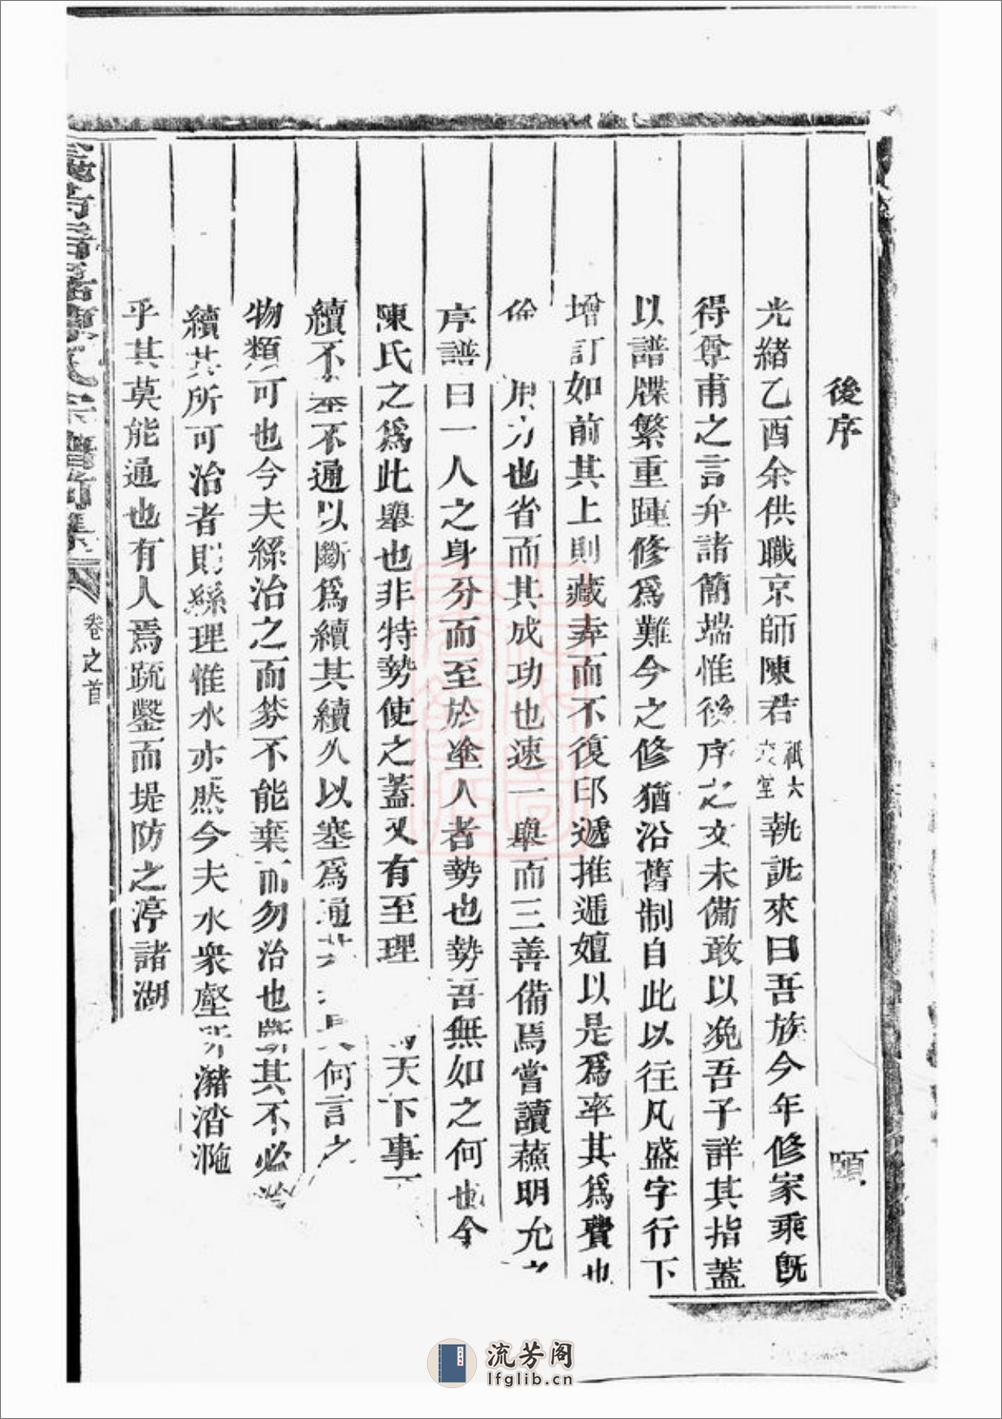 後序
頤
光緒乙酉余供職京師陳君祇六六堂執訛來曰吾族今年修家乘旣
得尊甫之言弁諸簡端惟後序之文未備敢以浼吾子詳其指蓋
以譜牒繁重踵修爲難今之修猶沿舊制自此以往凡盛字行下
增訂如前其上則藏弆而不復印遞推遞嬗以是爲率其爲費也
儉用力也省而其成功也速一舉而三善備焉嘗讀蘇明允之
序譜曰一人之身分而至於塗人者勢也勢吾無如之何也今
陳氏之爲此舉也非特勢使之蓋又有至理天下事
續不不通以斷爲續其續久以塞爲通其何言之
物類可也今夫絲治之而棼不能棄而勿治也斷其不必
續其所可治者則絲理惟水亦然今夫水衆壑所瀦涾㴰
乎其莫能通也有人焉疏鑿而堤防之渟諸湖
陳氏宗譜
卷之首
流芳阁
lfglib.cn